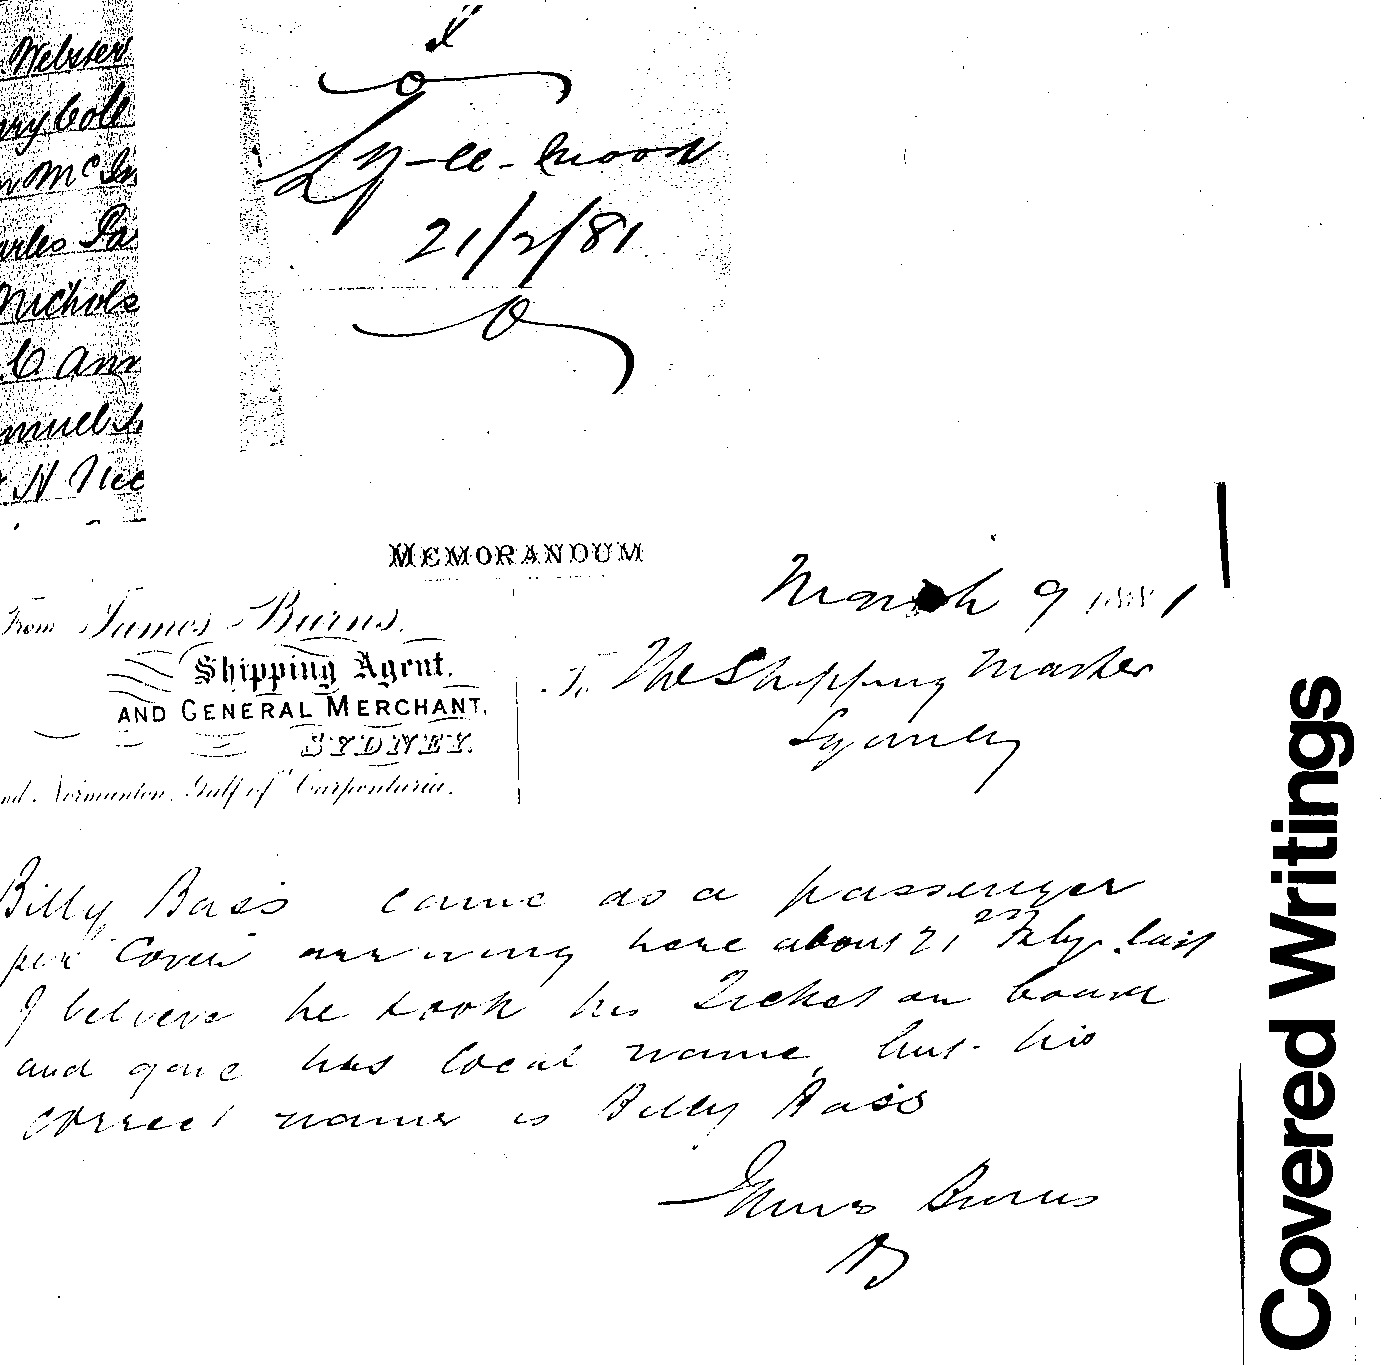 Webster
Coll
Mc
Nichols
Ann
Ly-ee-moon
21/2/81
MEMORANDUM
March 9 1881
From James Burns.
Shipping Agent.
AND GENERAL MERCHANT,
SYDNEY.
Normanton, Gulf of Carpentaria.
To The Shipping Master
Sydney
Billy Bass came as a passenger
per "Corea" arriving here about 21st July last
I believe he took his Ticket on board
and gave his local name, but his
correct name is Billy Bass
James Burns
Covered Writings